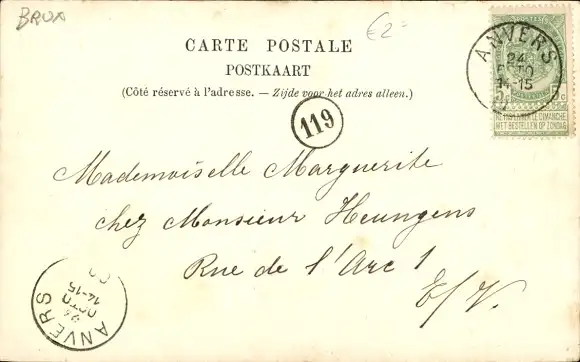 BRUX
€2=
CARTE POSTALE
POSTKAART
(Côté réservé à l'adresse. — Zijde voor het adres alleen.)
119
ANVERS
24
OCTO
14-15
NE PAS LIVRER LE DIMANCHE
NIET BESTELLEN OP ZONDAG
Mademoiselle Marguerite
chez Monsieur Heungens
Rue de l'Arc 1
E/V.
ANVERS
24
OCTO
14-15
00